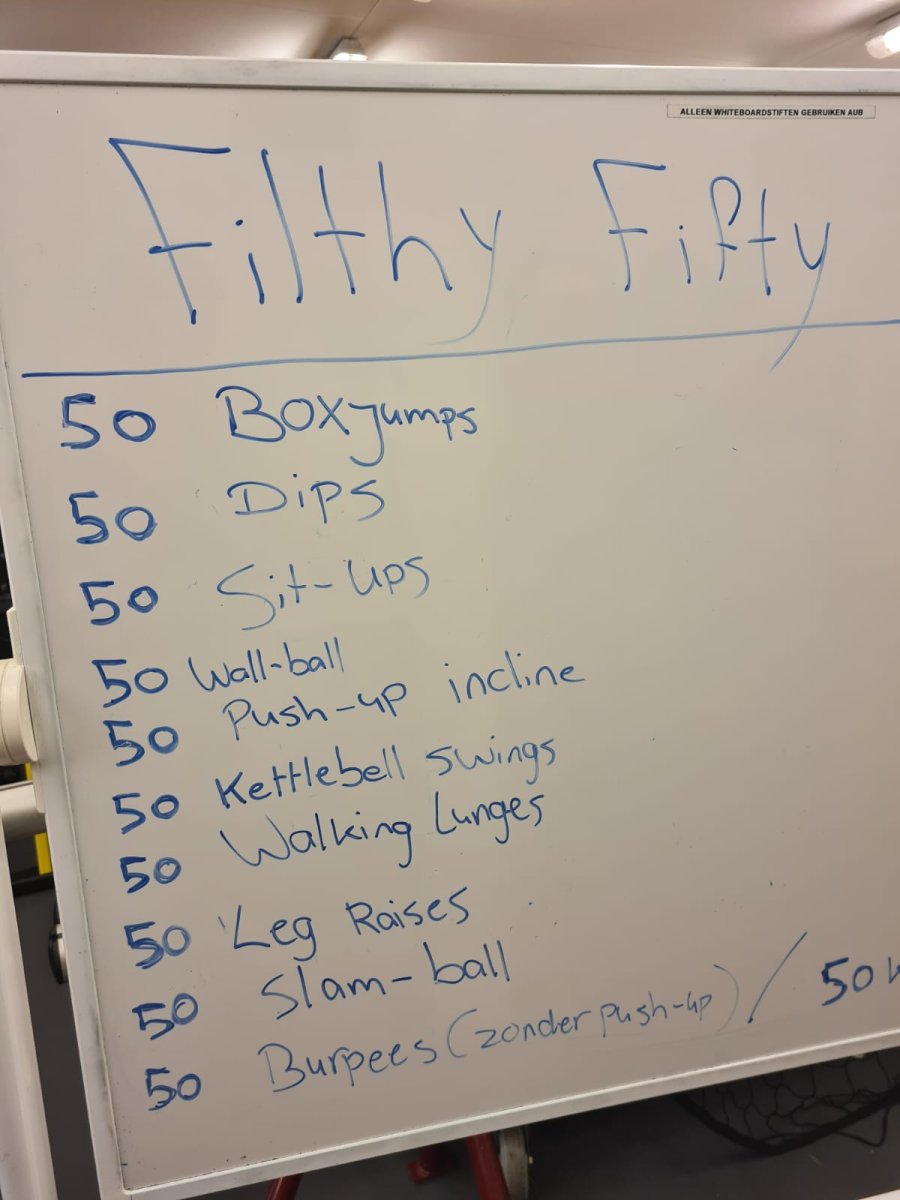 ALLEEN WHITEBOARDSTIFTEN GEBRUIKEN AUB
Filthy Fifty
50 Boxjumps
50 Dips
50 Sit-ups
50 Wall-ball
50 Push-up incline
50 Kettlebell swings
50 Walking Lunges
50 Leg Raises
50 Slam-ball
50 Burpees (zonder push-up) / 50